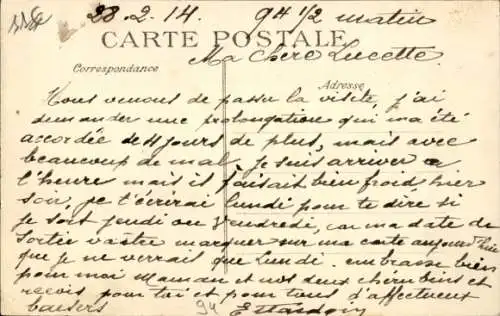 28.2.14. 9H 1/2 matin
CARTE POSTALE
Ma Chère Lucette
Correspondance
Adresse
Nous venons de passer la visite, j'ai
demander une prolongation qui m'a été
accordée de 4 jours de plus, mais avec
beaucoup de mal, je suis arriver a
l'heure mais il faisait bien froid, hier
soir, je t'écrirai Lundi pour te dire si
je sort jeudi ou Vendredi, car ma date de
Sortie va être marquer sur ma carte aujourd'hui
que je ne verrait que Lundi. embrasse bien
pour moi Maman et nos deux chérubins et
reçois pour toi et pour tous d'affectueux
baisers
94